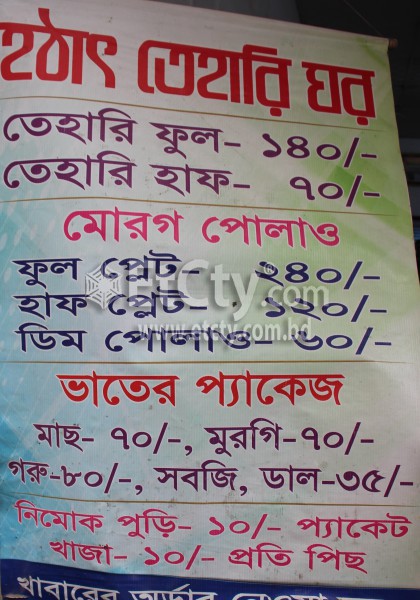 হঠাৎ তেহারি ঘর
তেহারি ফুল- ১৪০/-
তেহারি হাফ- ৭০/-
মোরগ পোলাও
ফুল প্লেট- ২৪০/-
হাফ প্লেট- ১২০/-
ডিম পোলাও- ৬০/-
EtCty.com
www.etcty.com.bd
ভাতের প্যাকেজ
মাছ- ৭০/-, মুরগি-৭০/-
গরু-৮০/-, সবজি, ডাল-৩৫/-
নিমোক পুড়ি- ১০/- প্যাকেট
খাজা- ১০/- প্রতি পিছ
খাবারের অর্ডার নেওয়া